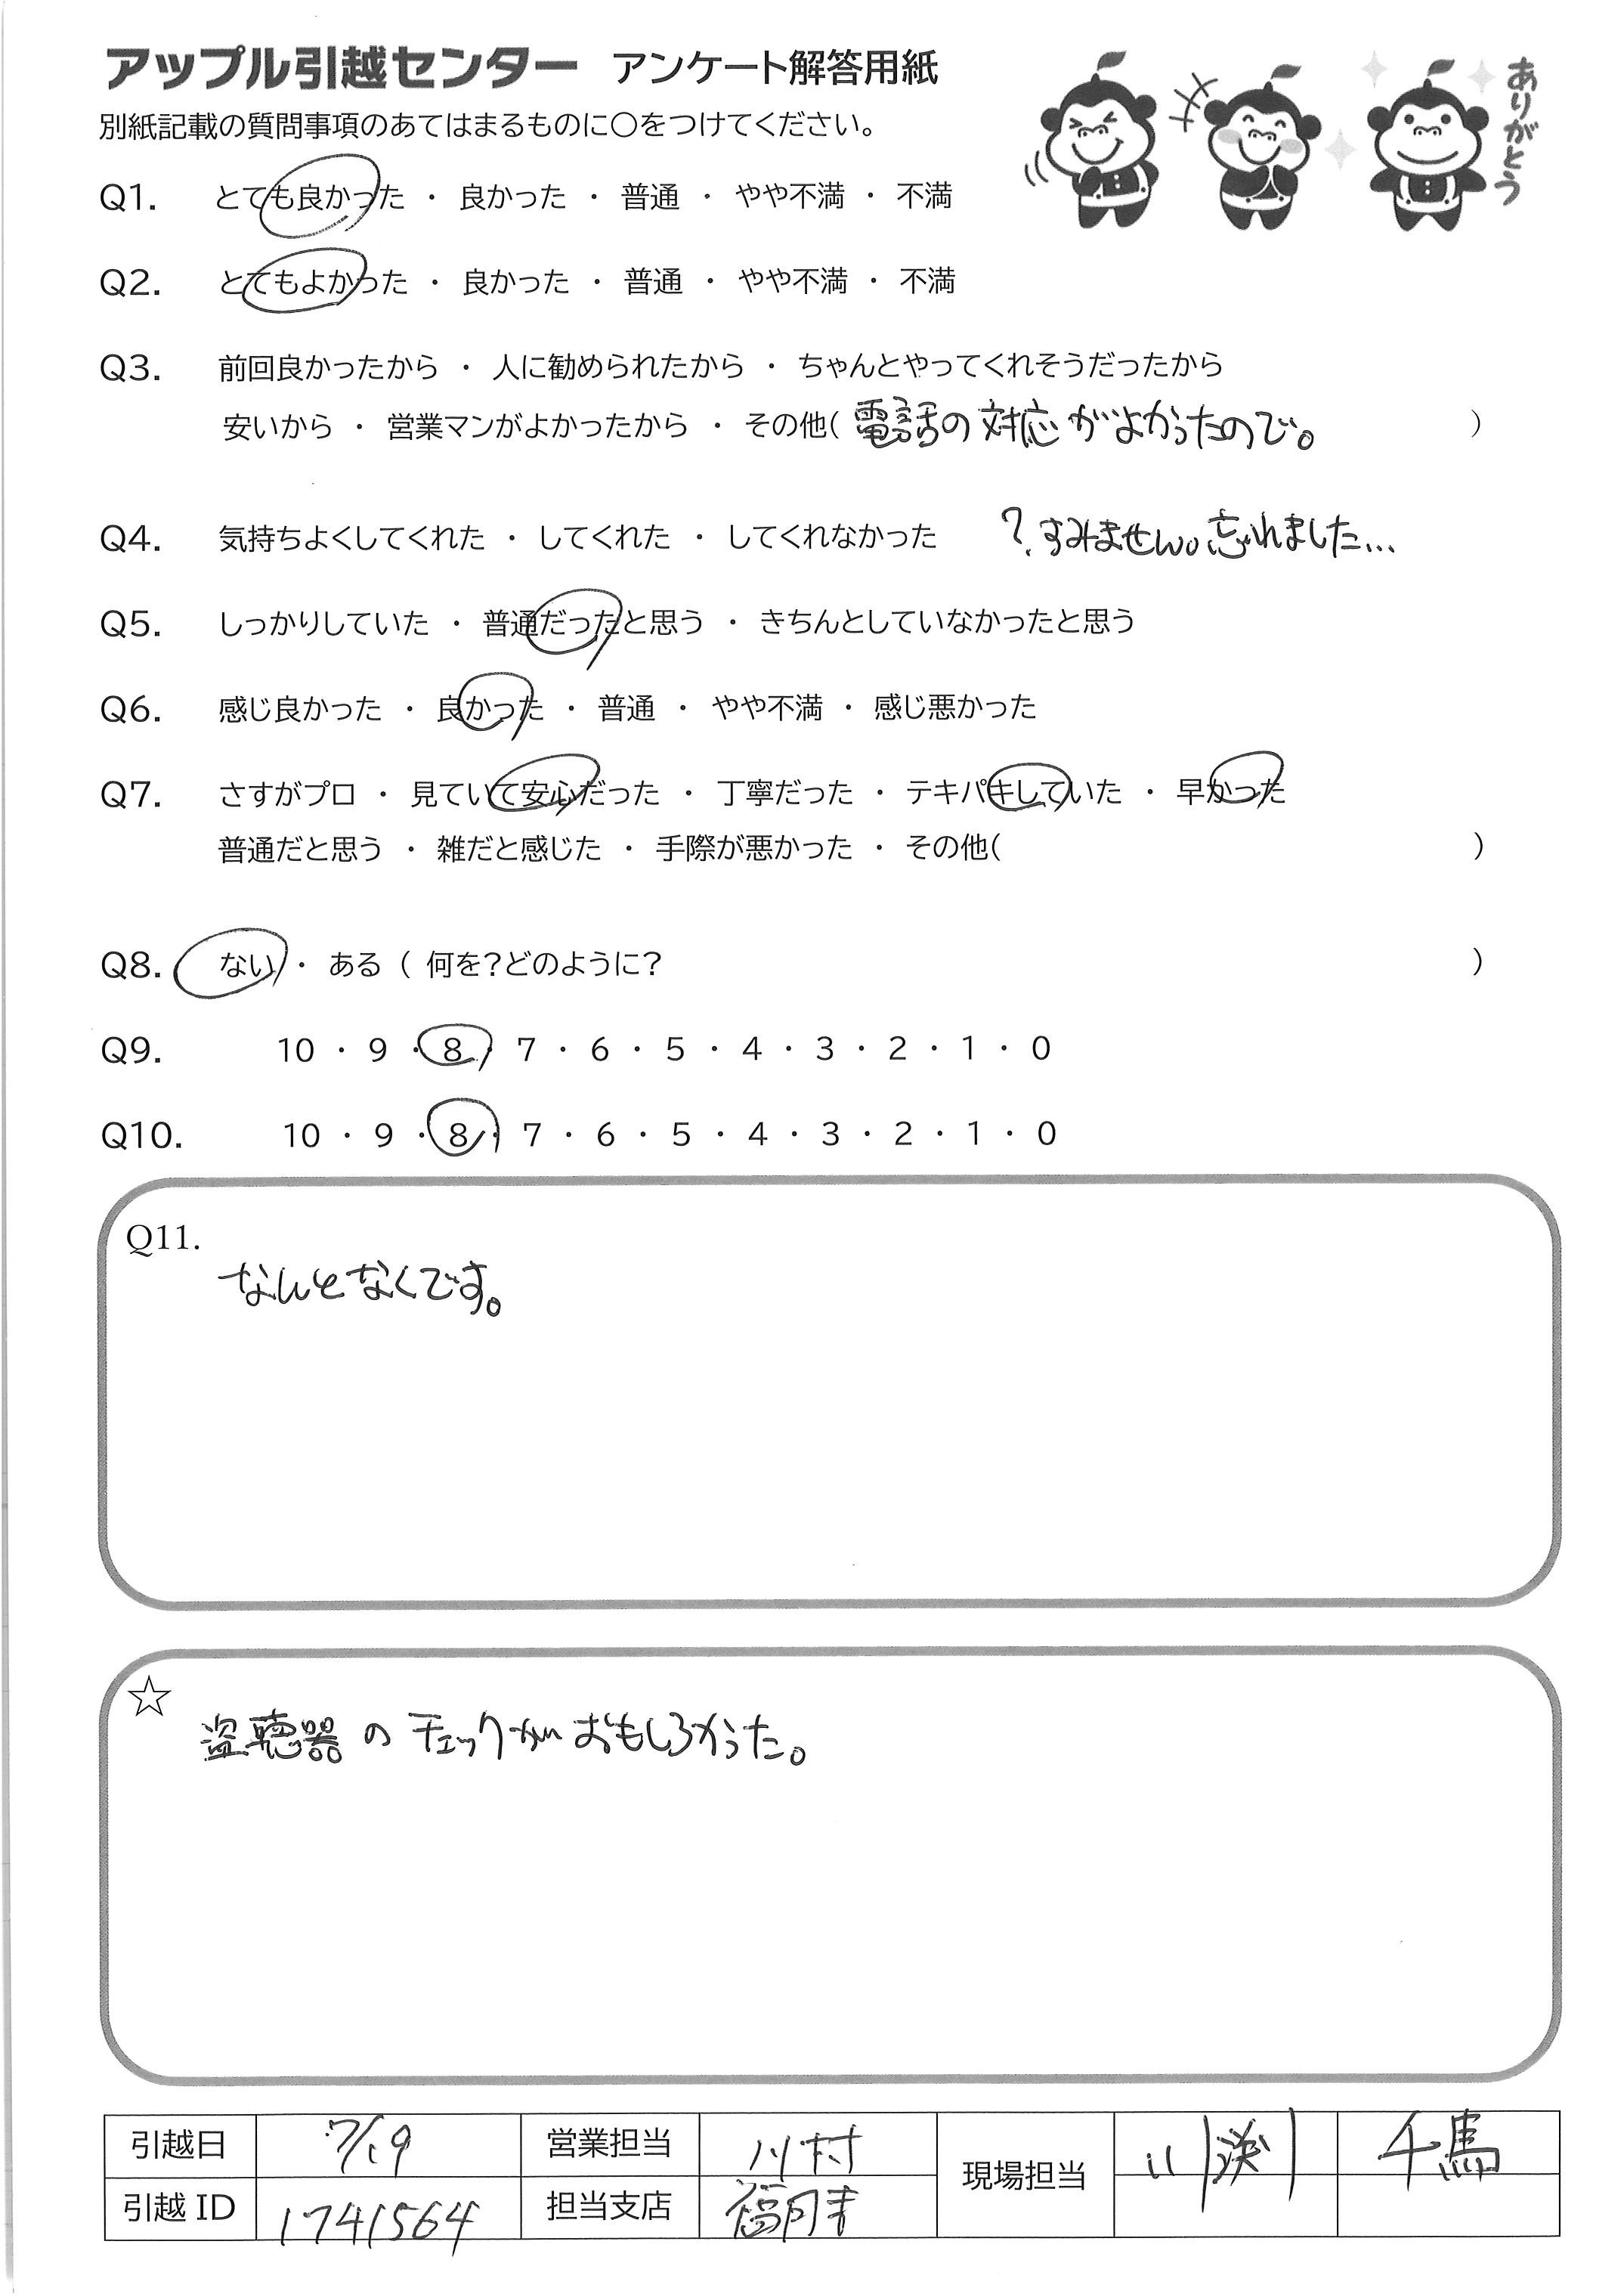 アップル引越センター アンケート解答用紙
ありがとう
別紙記載の質問事項のあてはまるものに○をつけてください。
Q1. とても良かった ・ 良かった ・ 普通 ・ やや不満 ・ 不満
Q2. とてもよかった ・ 良かった ・ 普通 ・ やや不満 ・ 不満
Q3. 前回良かったから ・ 人に勧められたから ・ ちゃんとやってくれそうだったから
安いから ・ 営業マンがよかったから ・ その他( 電話の対応がよかったので。 )
Q4. 気持ちよくしてくれた ・ してくれた ・ してくれなかった ?すみません。忘れました...
Q5. しっかりしていた ・ 普通だったと思う ・ きちんとしていなかったと思う
Q6. 感じ良かった ・ 良かった ・ 普通 ・ やや不満 ・ 感じ悪かった
Q7. さすがプロ ・ 見ていて安心だった ・ 丁寧だった ・ テキパキしていた ・ 早かった
普通だと思う ・ 雑だと感じた ・ 手際が悪かった ・ その他( )
Q8. ない ・ ある ( 何を?どのように? )
Q9. 10 ・ 9 ・ 8 ・ 7 ・ 6 ・ 5 ・ 4 ・ 3 ・ 2 ・ 1 ・ 0
Q10. 10 ・ 9 ・ 8 ・ 7 ・ 6 ・ 5 ・ 4 ・ 3 ・ 2 ・ 1 ・ 0
Q11.
なんとなくです。
☆
盗聴器のチェックがおもしろかった。
引越日 7/19 営業担当 川村 現場担当 千馬
引越ID 1741564 担当支店